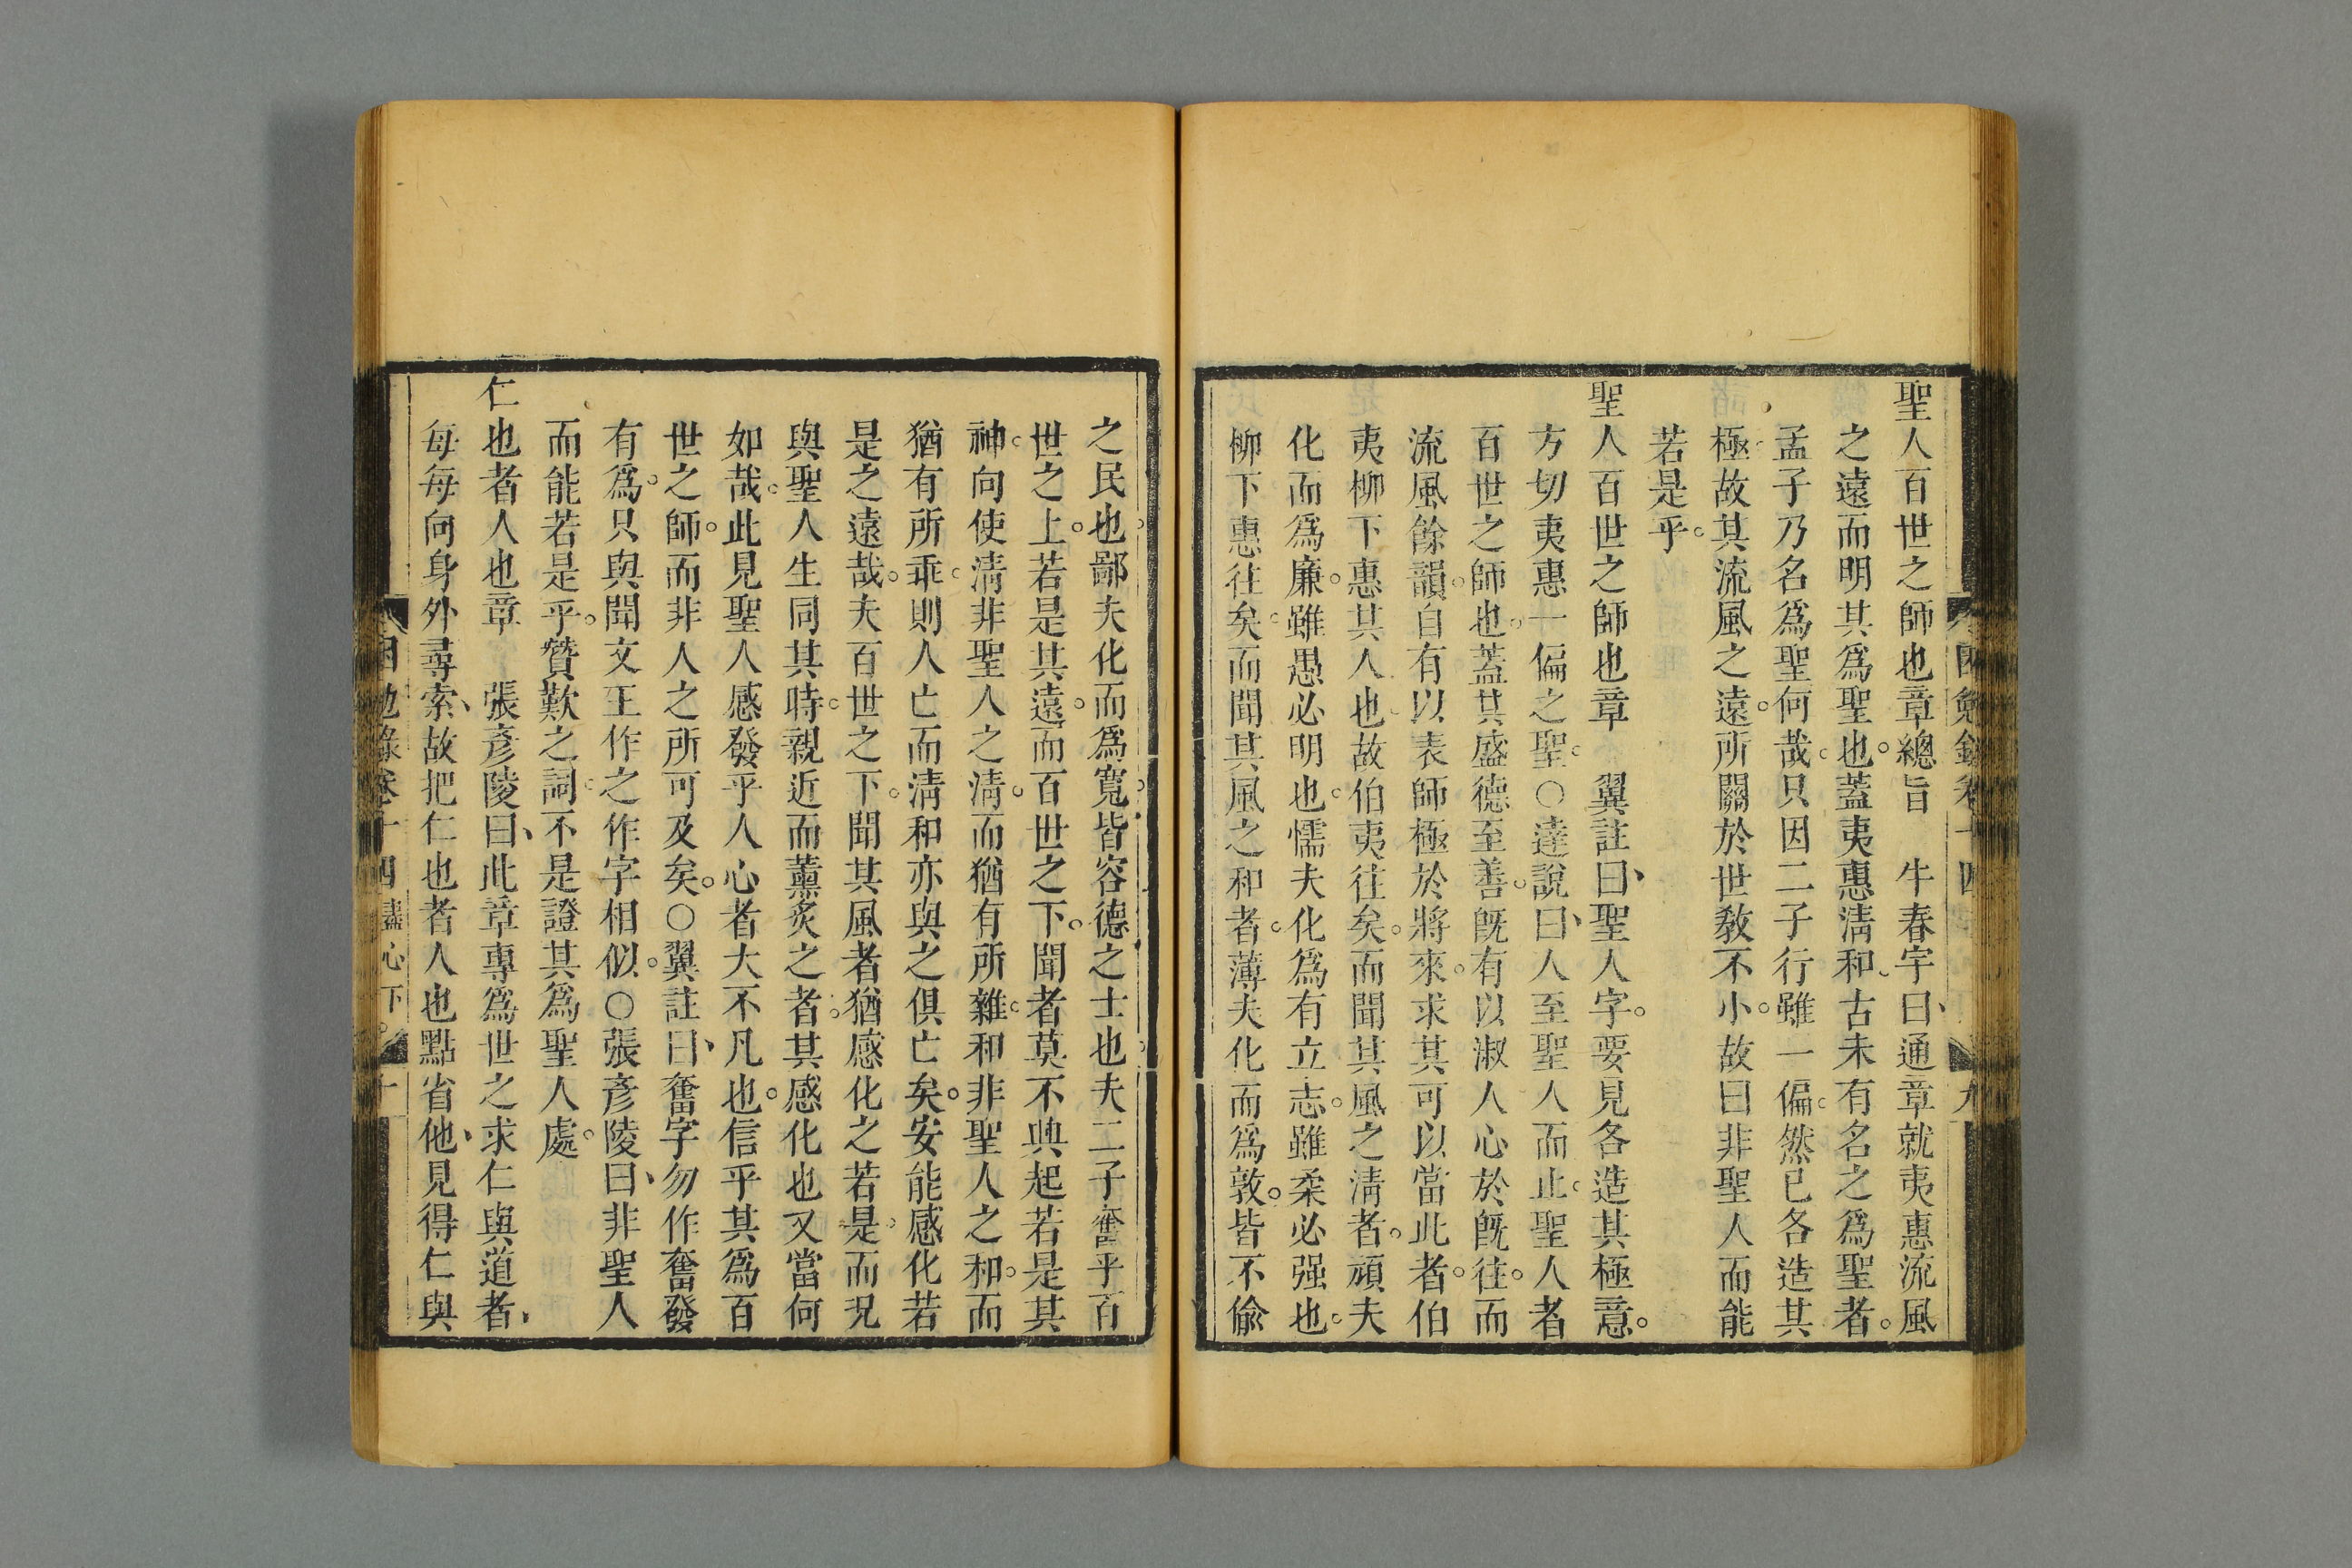 聖人百世之師也章總旨　牛春宇曰、通章就夷惠流風
之遠而明其爲聖也。蓋夷惠淸和、古未有名之爲聖者。
孟子乃名爲聖何哉。只因二子行雖一偏。然已各造其
極。故其流風之遠。所關於世敎不小。故曰非聖人而能
若是乎。
聖人百世之師也章　翼註曰、聖人字。要見各造其極意。
方切夷惠一偏之聖。○達說曰、人至聖人而止。聖人者
百世之師也。蓋其盛德至善。旣有以淑人心於旣往。而
流風餘韻。自有以表師極於將來。求其可以當此者。伯
夷柳下惠其人也。故伯夷往矣。而聞其風之淸者。頑夫
化而爲廉。雖愚必明也。懦夫化爲有立志。雖柔必强也。
柳下惠往矣。而聞其風之和者。薄夫化而爲敦。皆不偸
之民也。鄙夫化而爲寬。皆容德之士也。夫二子奮乎百
世之上。若是其遠。而百世之下。聞者莫不興起若是其
神。向使淸非聖人之淸。而猶有所雜。和非聖人之和。而
猶有所乖。則人亡而淸和亦與之俱亡矣。安能感化若
是之遠哉。夫百世之下。聞其風者猶感化之若是。而況
與聖人生同其時。親近而薰炙之者。其感化也又當何
如哉。此見聖人感發乎人心者大不凡也。信乎其爲百
世之師。而非人之所可及矣。○翼註曰、奮字勿作奮發
有爲。只與聞文王作之作字相似。○張彥陵曰、非聖人
而能若是乎。贊歎之詞。不是證其爲聖人處。
仁也者人也章　張彥陵曰、此章專爲世之求仁與道者、
每每向身外尋索、故把仁也者人也點省他、見得仁與
四勉錄卷十四　盡心下。　十